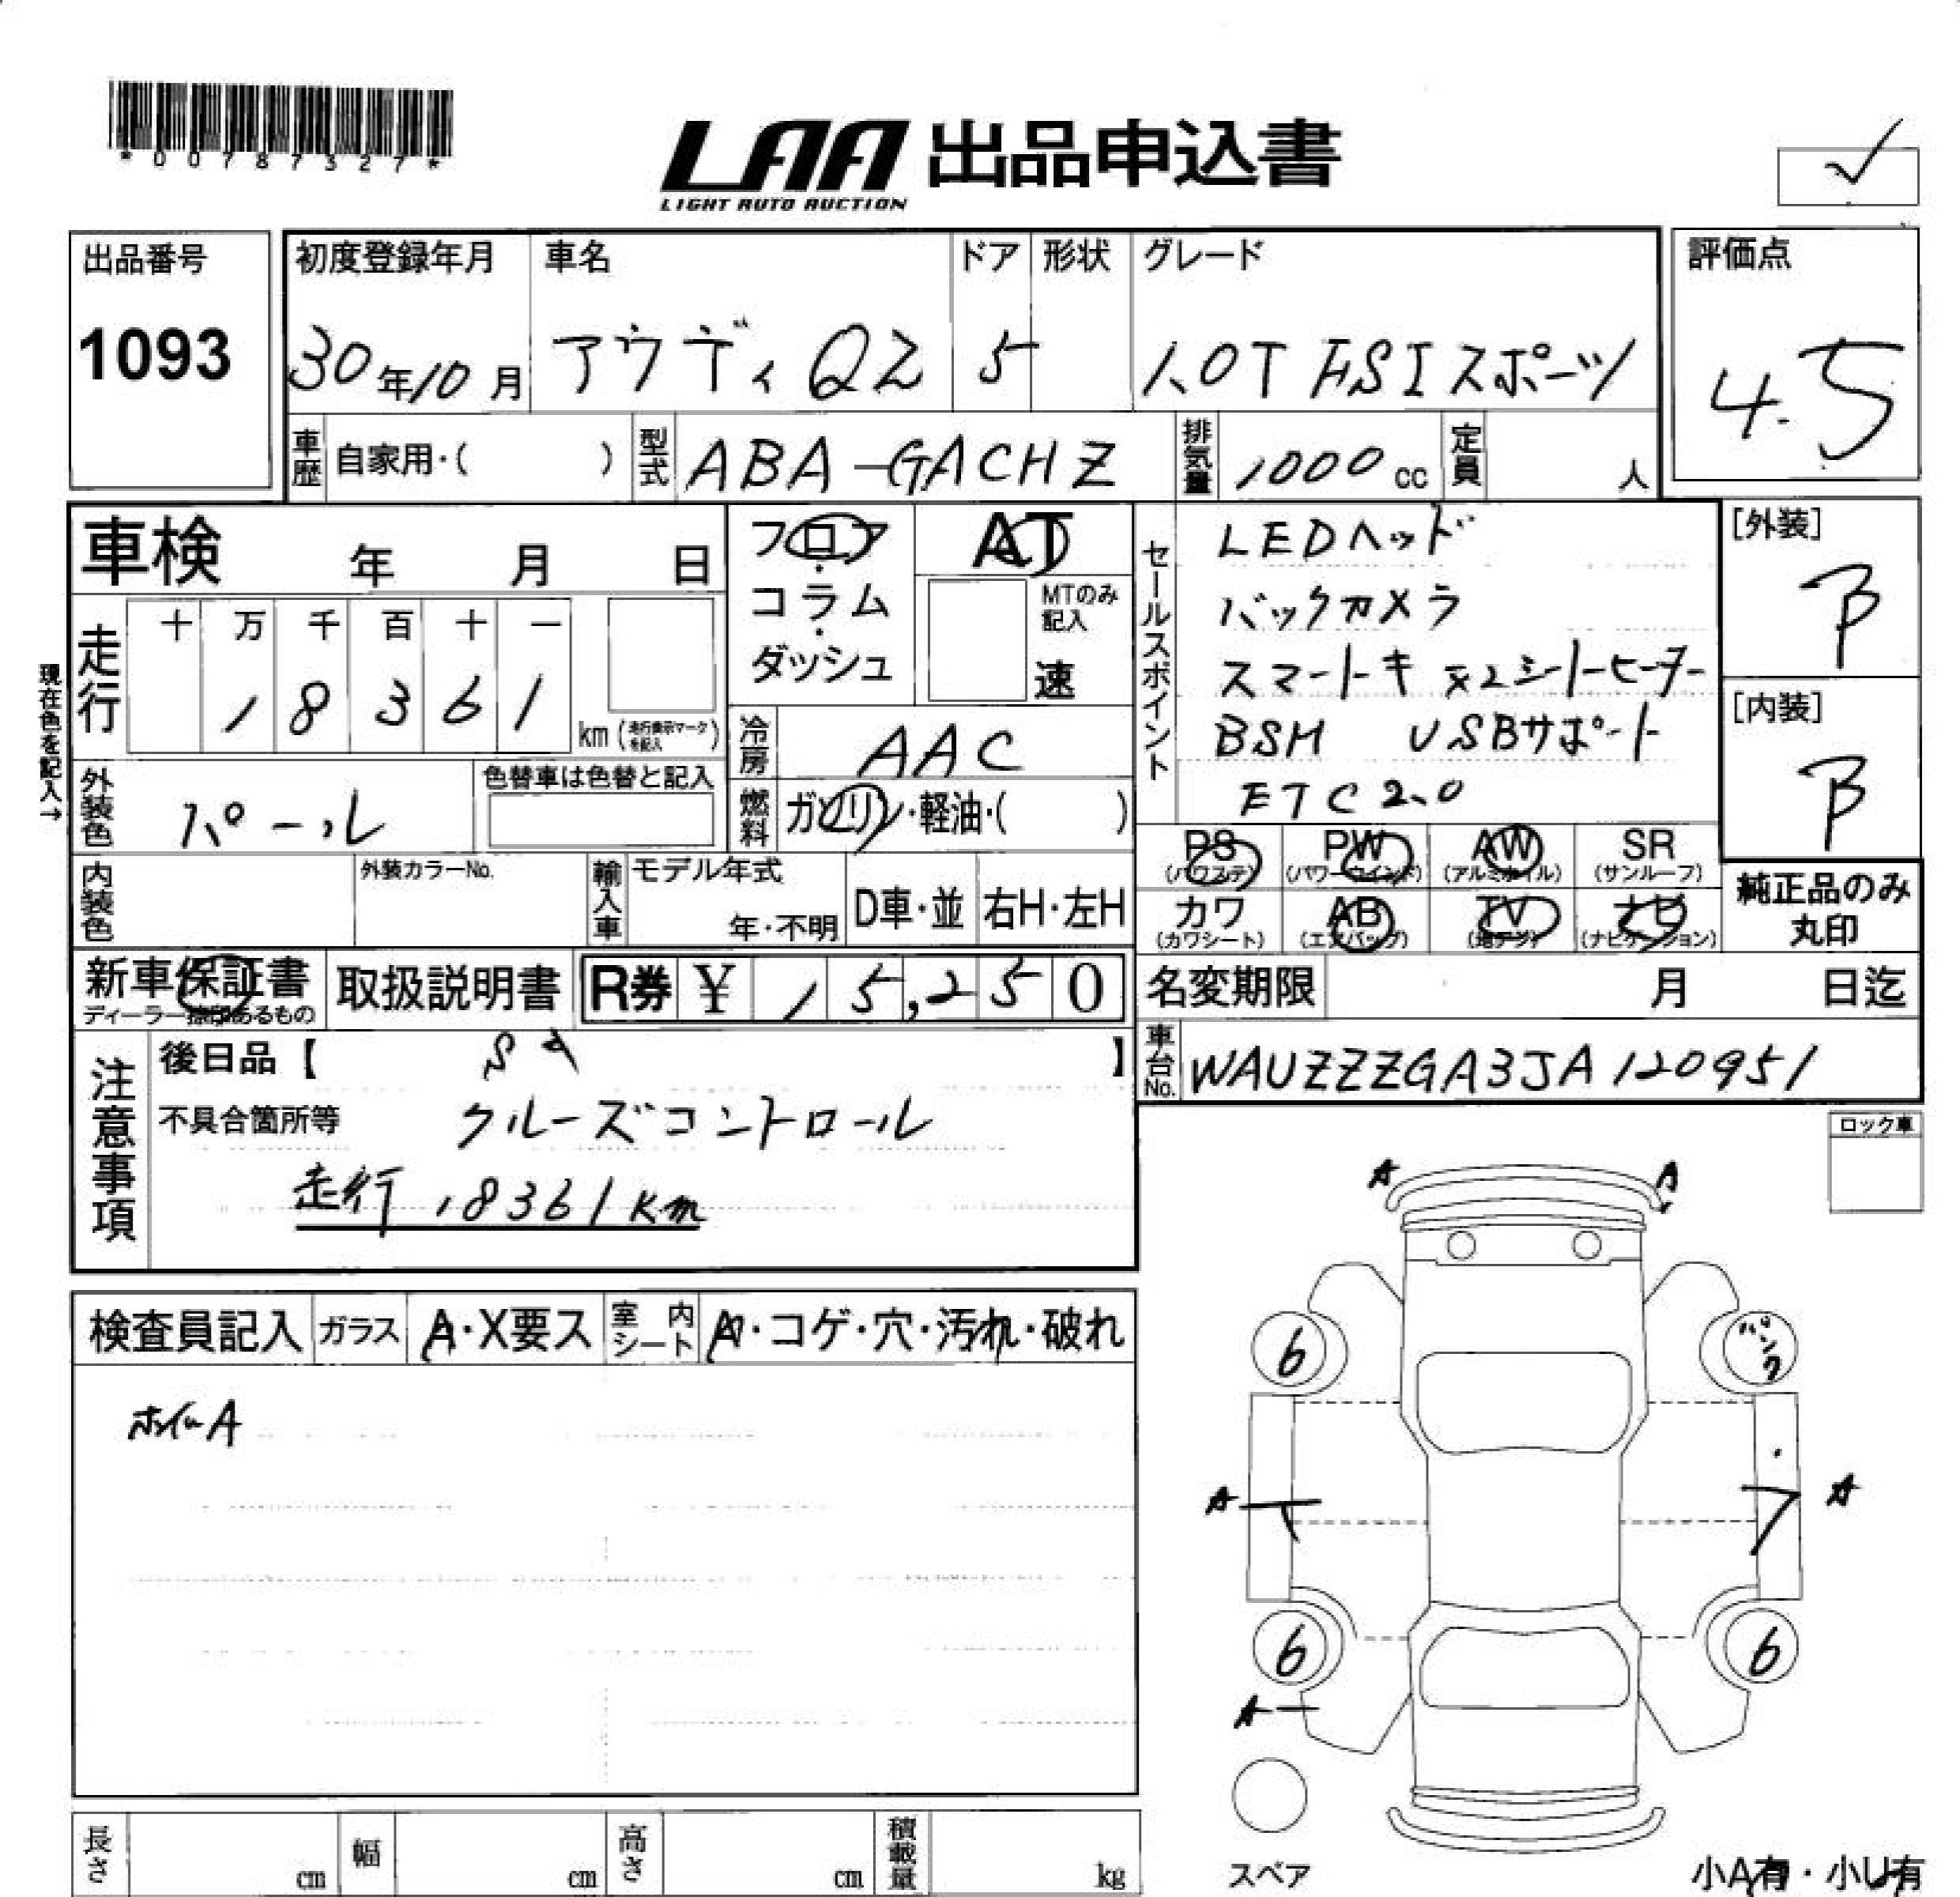 *00787327*
LAA 出品申込書
LIGHT AUTO AUCTION
出品番号
1093
初度登録年月
30年10月
車名
アウディ Q2
ドア
5
形状
グレード
1.0T FSI スポーツ
評価点
4.5
車歴 自家用・( )
型式 ABA-GACHZ
排気量 1000cc
定員 人
車検 年 月 日
フロア・コラム・ダッシュ
AT
MTのみ記入
速
現在色を記入→
走行
十 万 千 百 十 一
1 8 3 6 1
km(走行表示マークを記入)
冷房 AAC
燃料 ガソリン・軽油・( )
外装色 パール
色替車は色替と記入
内装色
外装カラーNo.
輸入車
モデル年式
年・不明
D車・並
右H・左H
セールスポイント
LEDヘッド
バックカメラ
スマートキ x2 シートヒーター
BSM USBサポート
ETC2.0
[外装]
B
[内装]
B
PS (パワステ)
PW (パワーウインド)
AW (アルミホイル)
SR (サンルーフ)
カワ (カワシート)
AB (エアバッグ)
TV (地デジ)
ナビ (ナビゲーション)
純正品のみ丸印
新車保証書
取扱説明書
R券 ¥ 15,250
名変期限 月 日迄
車台No. WAUZZZGA3JA120951
注意事項
後日品【 】
不具合箇所等
クルーズコントロール
走行 18361km
ロック車
検査員記入
ガラス A・X要ス
室内シート A・コゲ・穴・汚れ・破れ
ホイールA
A
A
6
パンク
A
A
6
6
A
スペア
小A有・小U有
長さ cm
幅 cm
高さ cm
積載量 kg